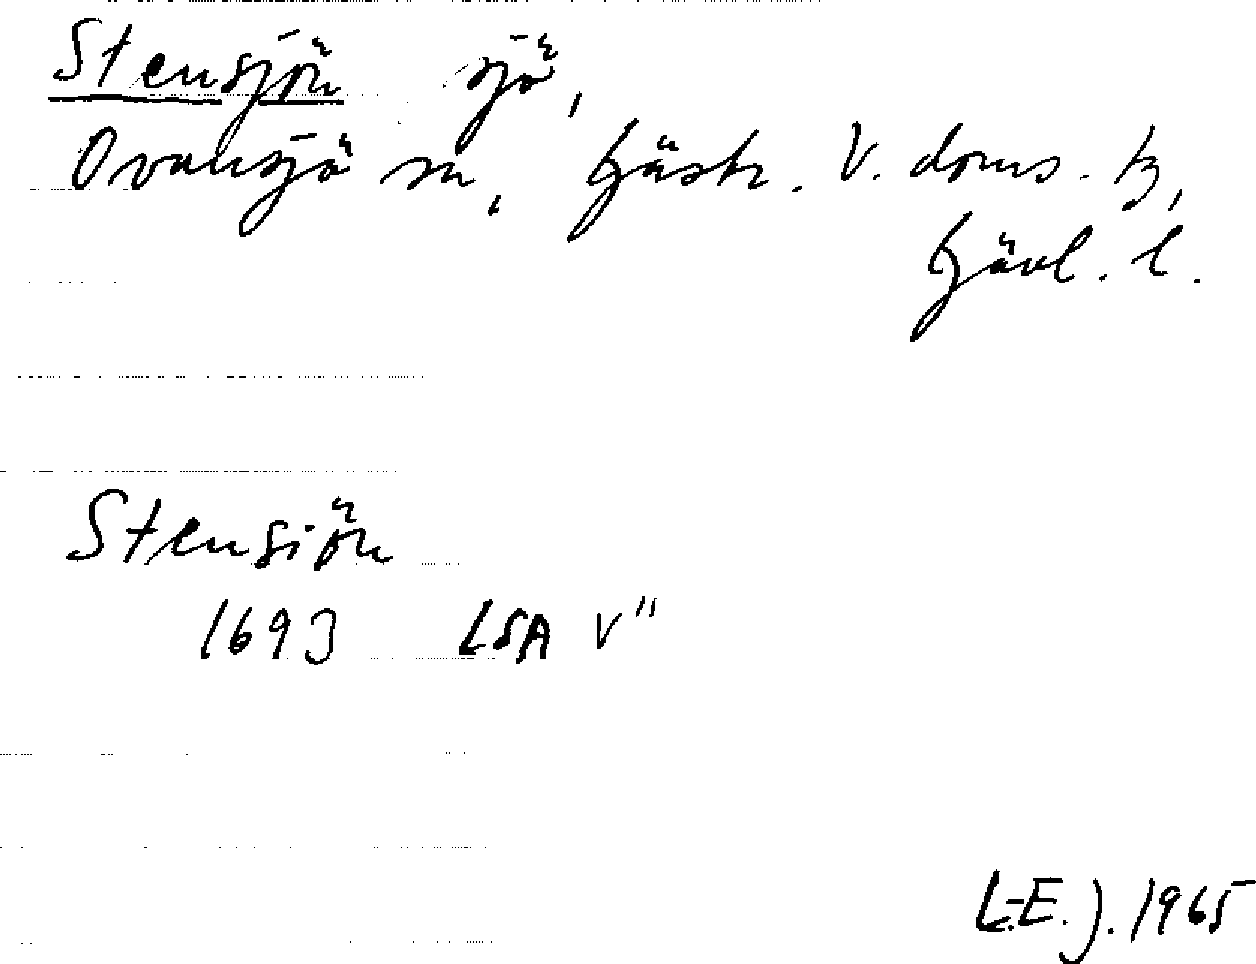 Stensjön sjö,
Ovansjö sn, Gästr. V. doms. h,
Gävl. l.
Stensiön
1693 LSA V"
L-E. J. 1965